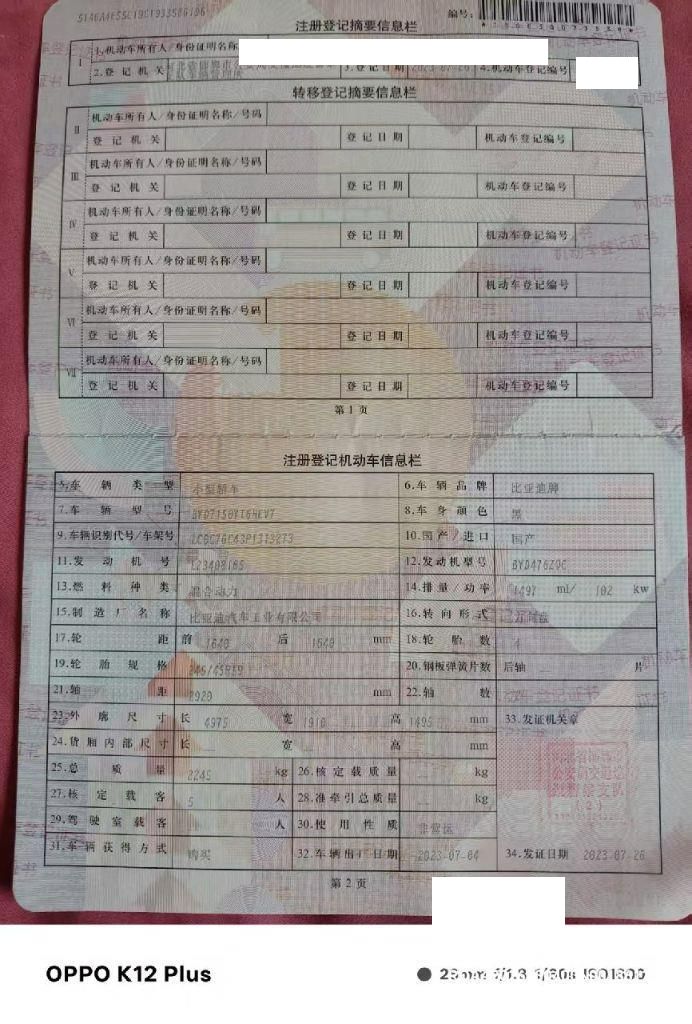 注册登记摘要信息栏
编号:
I 1.机动车所有人/身份证明名称
2.登记机关 3.登记日期 2023-07-26 4.机动车登记编号
转移登记摘要信息栏
II 机动车所有人/身份证明名称/号码
登记机关 登记日期 机动车登记编号
III 机动车所有人/身份证明名称/号码
登记机关 登记日期 机动车登记编号
IV 机动车所有人/身份证明名称/号码
登记机关 登记日期 机动车登记编号
V 机动车所有人/身份证明名称/号码
登记机关 登记日期 机动车登记编号
VI 机动车所有人/身份证明名称/号码
登记机关 登记日期 机动车登记编号
VII 机动车所有人/身份证明名称/号码
登记机关 登记日期 机动车登记编号
第1页
注册登记机动车信息栏
5.车辆类型 小型轿车 6.车辆品牌 比亚迪牌
7.车辆型号 8.车身颜色 黑
9.车辆识别代号/车架号 10.国产/进口 国产
11.发动机号 12.发动机型号 BYD476ZQC
13.燃料种类 混合动力 14.排量/功率 1497 ml/ 102 kw
15.制造厂名称 比亚迪汽车工业有限公司 16.转向形式 方向盘
17.轮距 前 1640 后 1640 mm 18.轮胎数 4
19.轮胎规格 245/45R19 20.钢板弹簧片数 后轴 片
21.轴距 2920 mm 22.轴数
23.外廓尺寸 长 4975 宽 1910 高 1495 mm 33.发证机关章
24.货厢内部尺寸 长 宽 高 mm
25.总质量 2245 kg 26.核定载质量 kg
27.核定载客 5 人 28.准牵引总质量 kg
29.驾驶室载客 人 30.使用性质 非营运
31.车辆获得方式 购买 32.车辆出厂日期 2023-07-04 34.发证日期 2023-07-26
第2页
OPPO K12 Plus